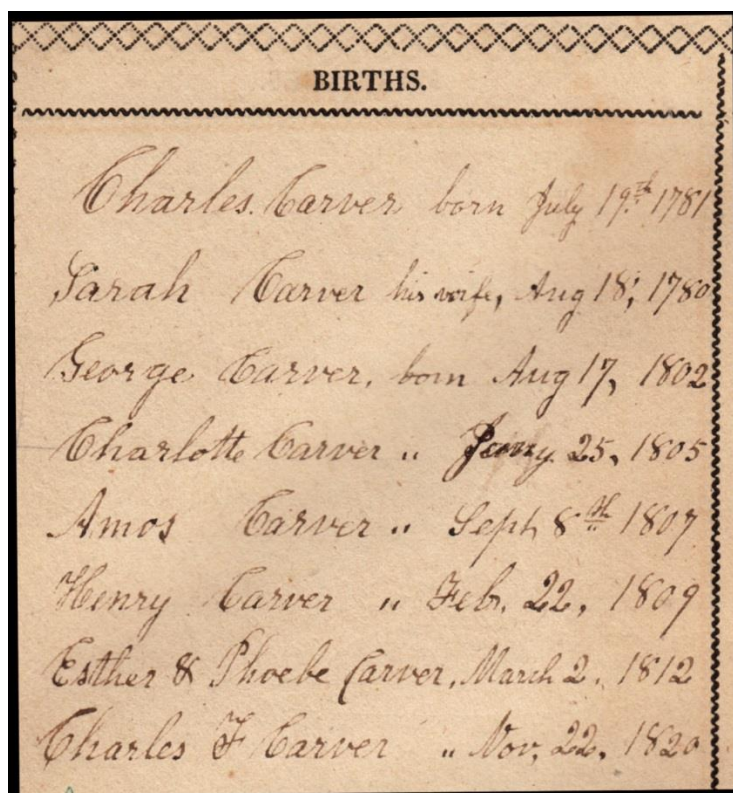 BIRTHS.
Charles. Carver born July 19th 1781
Sarah Carver his wife, Aug 18, 1780
George Carver, born Aug 17, 1802
Charlotte Carver " Jany. 25, 1805
Amos Carver " Sept 8th 1807
Henry Carver " Feb. 22, 1809
Esther & Phoebe Carver, March 2, 1812
Charles F Carver " Nov, 22, 1820